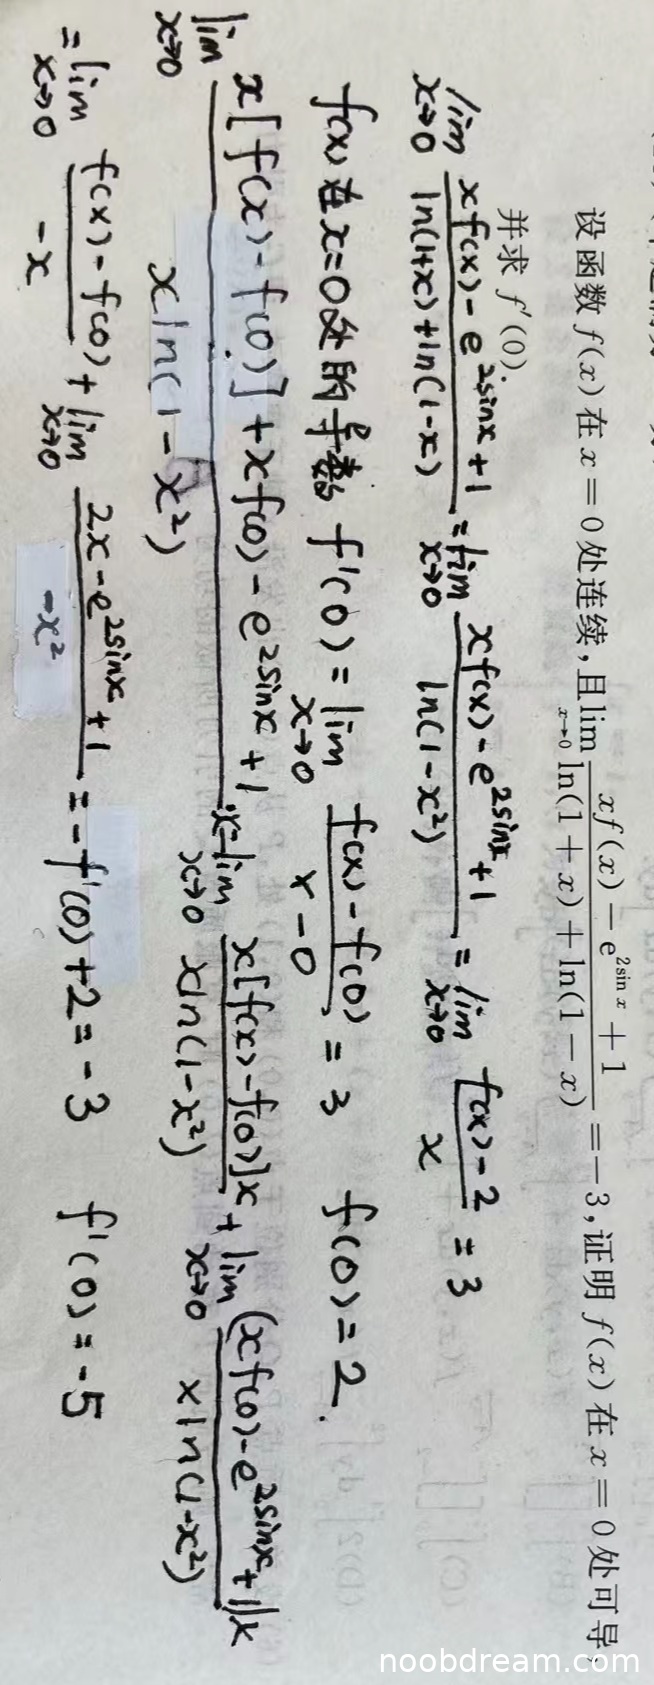 设函数 f(x) 在 x=0 处连续,且 lim_{x→0} (xf(x)-e^{2sin x}+1)/(ln(1+x)+ln(1-x)) =-3,证明 f(x) 在 x=0 处可导,
并求 f'(0).
lim_{x→0} (xf(x)-e^{2sinx}+1)/(ln(1+x)+ln(1-x)) = lim_{x→0} (xf(x)-e^{2sinx}+1)/(ln(1-x²)) = lim_{x→0} (f(x)-2)/x = 3
f(x)在x=0处的导数 f'(0) = lim_{x→0} (f(x)-f(0))/(x-0) = 3 f(0)=2.
lim_{x→0} (x[f(x)-f(0)]+xf(0)-e^{2sinx}+1)/(xln(1-x²)) ·x = lim_{x→0} (x[f(x)-f(0)]x)/(xln(1-x²)) + lim_{x→0} ((xf(0)-e^{2sinx}+1)x)/(xln(1-x²))
= lim_{x→0} (f(x)-f(0))/(-x) + lim_{x→0} (2x-e^{2sinx}+1)/(-x²) = -f'(0)+2=-3 f'(0)=-5
noobdream.com